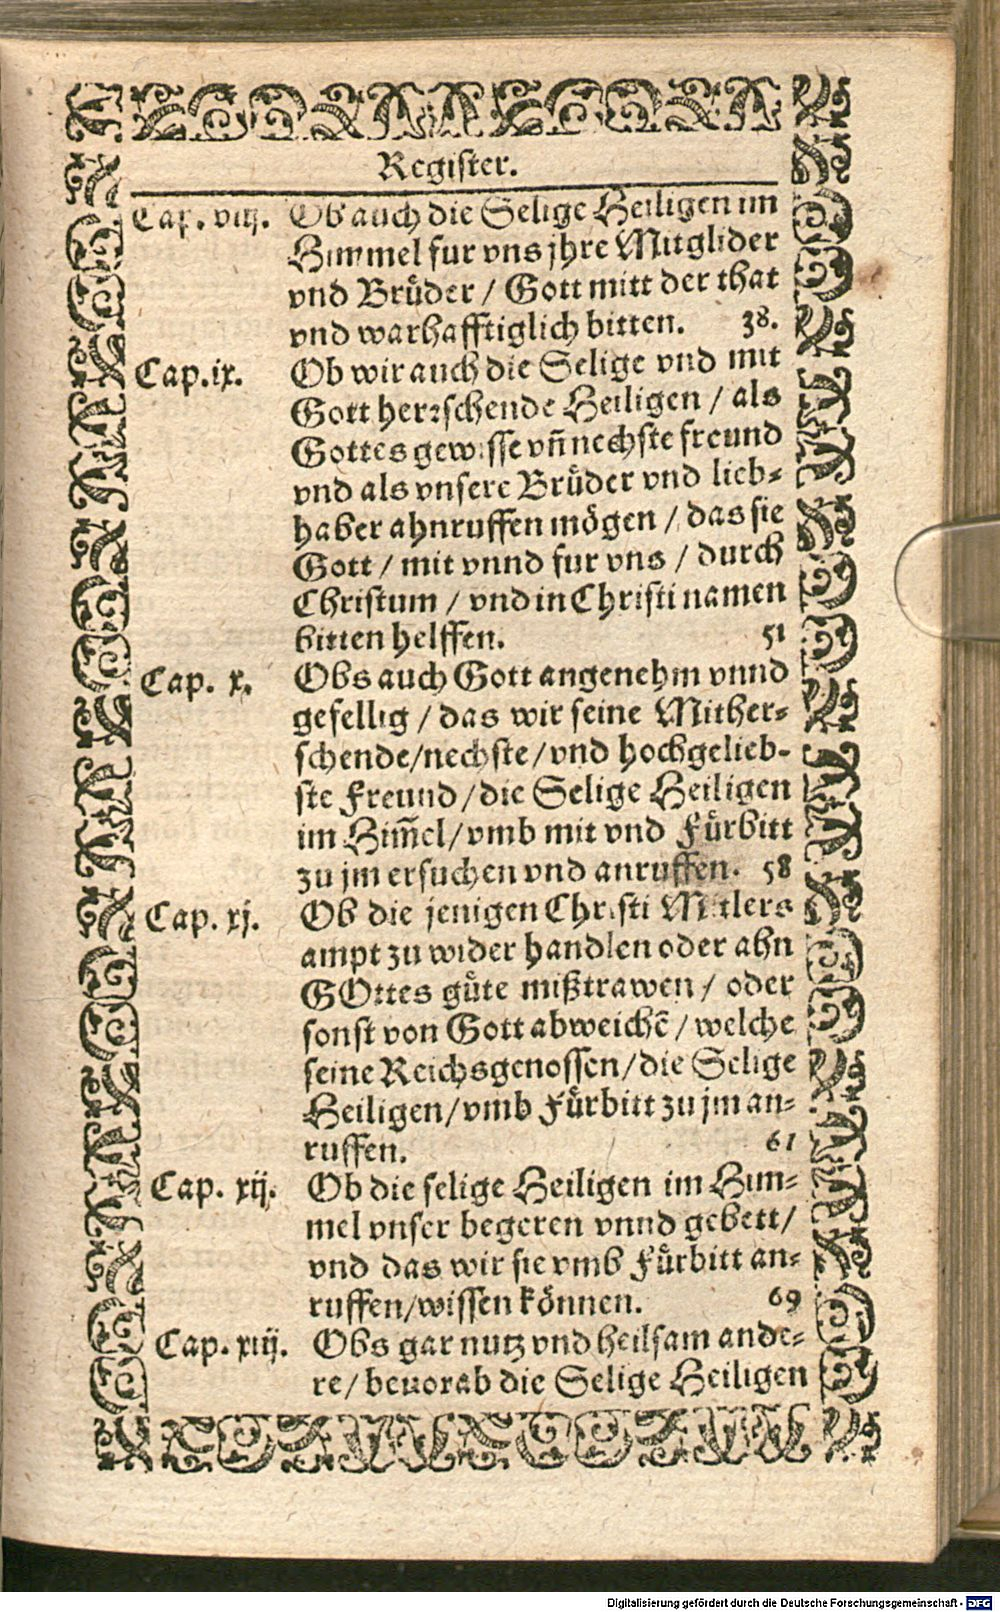 Register.
Cap. viij. Ob auch die Selige Heiligen im
Himmel fur vns jhre Mitglider
vnd Bruͤder / Gott mitt der that
vnd warhafftiglich bitten. 38.
Cap. ix. Ob wir auch die Selige vnd mit
Gott herꝛschende Heiligen / als
Gottes gewisse vñ nechste freund
vnd als vnsere Bruͤder vnd lieb-
haber ahnruffen moͤgen / das sie
Gott / mit vnnd fur vns / durch
Christum / vnd in Christi namen
bitten helffen. 51
Cap. x. Obs auch Gott angenehm vnnd
gefellig / das wir seine Mither-
schende/nechste/vnd hochgelieb-
ste Freund/die Selige Heiligen
im Him̃el/vmb mit vnd Fuͤrbitt
zu jm ersuchen vnd anruffen. 58
Cap. xj. Ob die jenigen Christi Mitlers
ampt zu wider handlen oder ahn
GOttes guͤte mißtrawen / oder
sonst von Gott abweichẽ / welche
seine Reichsgenossen/die Selige
Heiligen/vmb Fuͤrbitt zu jm an-
ruffen. 61
Cap. xij. Ob die selige Heiligen im Him-
mel vnser begeren vnnd gebett/
vnd das wir sie vmb Fuͤrbitt an-
ruffen/wissen koͤnnen. 69
Cap. xiij. Obs gar nutz vnd heilsam ande-
re/ beuorab die Selige Heiligen
Digitalisierung gefördert durch die Deutsche Forschungsgemeinschaft - DFG